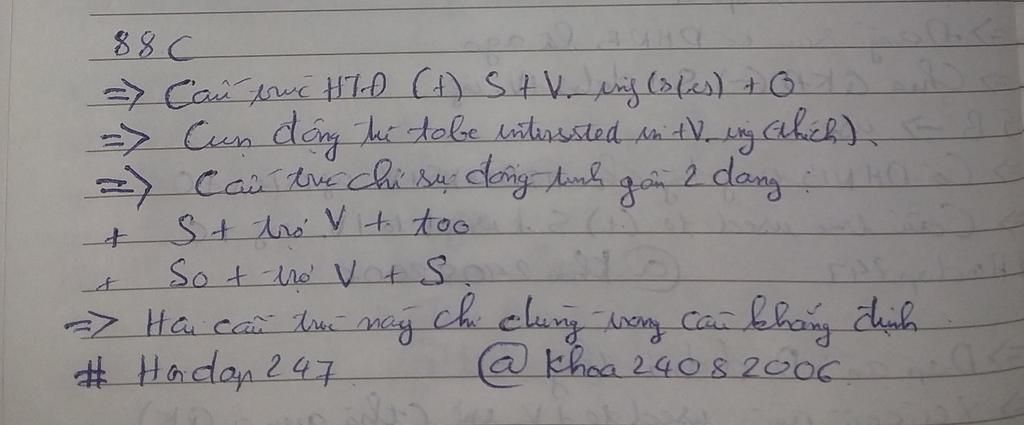 88C
=> Cấu trúc HTĐ (+) S + V. ing (s/es) + O
=> Cụm động từ tobe interested in + V. ing (thích).
=> Cấu trúc chỉ sự đồng tình gồm 2 dạng :
+ S + trợ V + too
+ So + trợ V + S.
=> Hai cấu trúc này chỉ dùng trong câu khẳng định
# Hoidap247 @khoa24082006